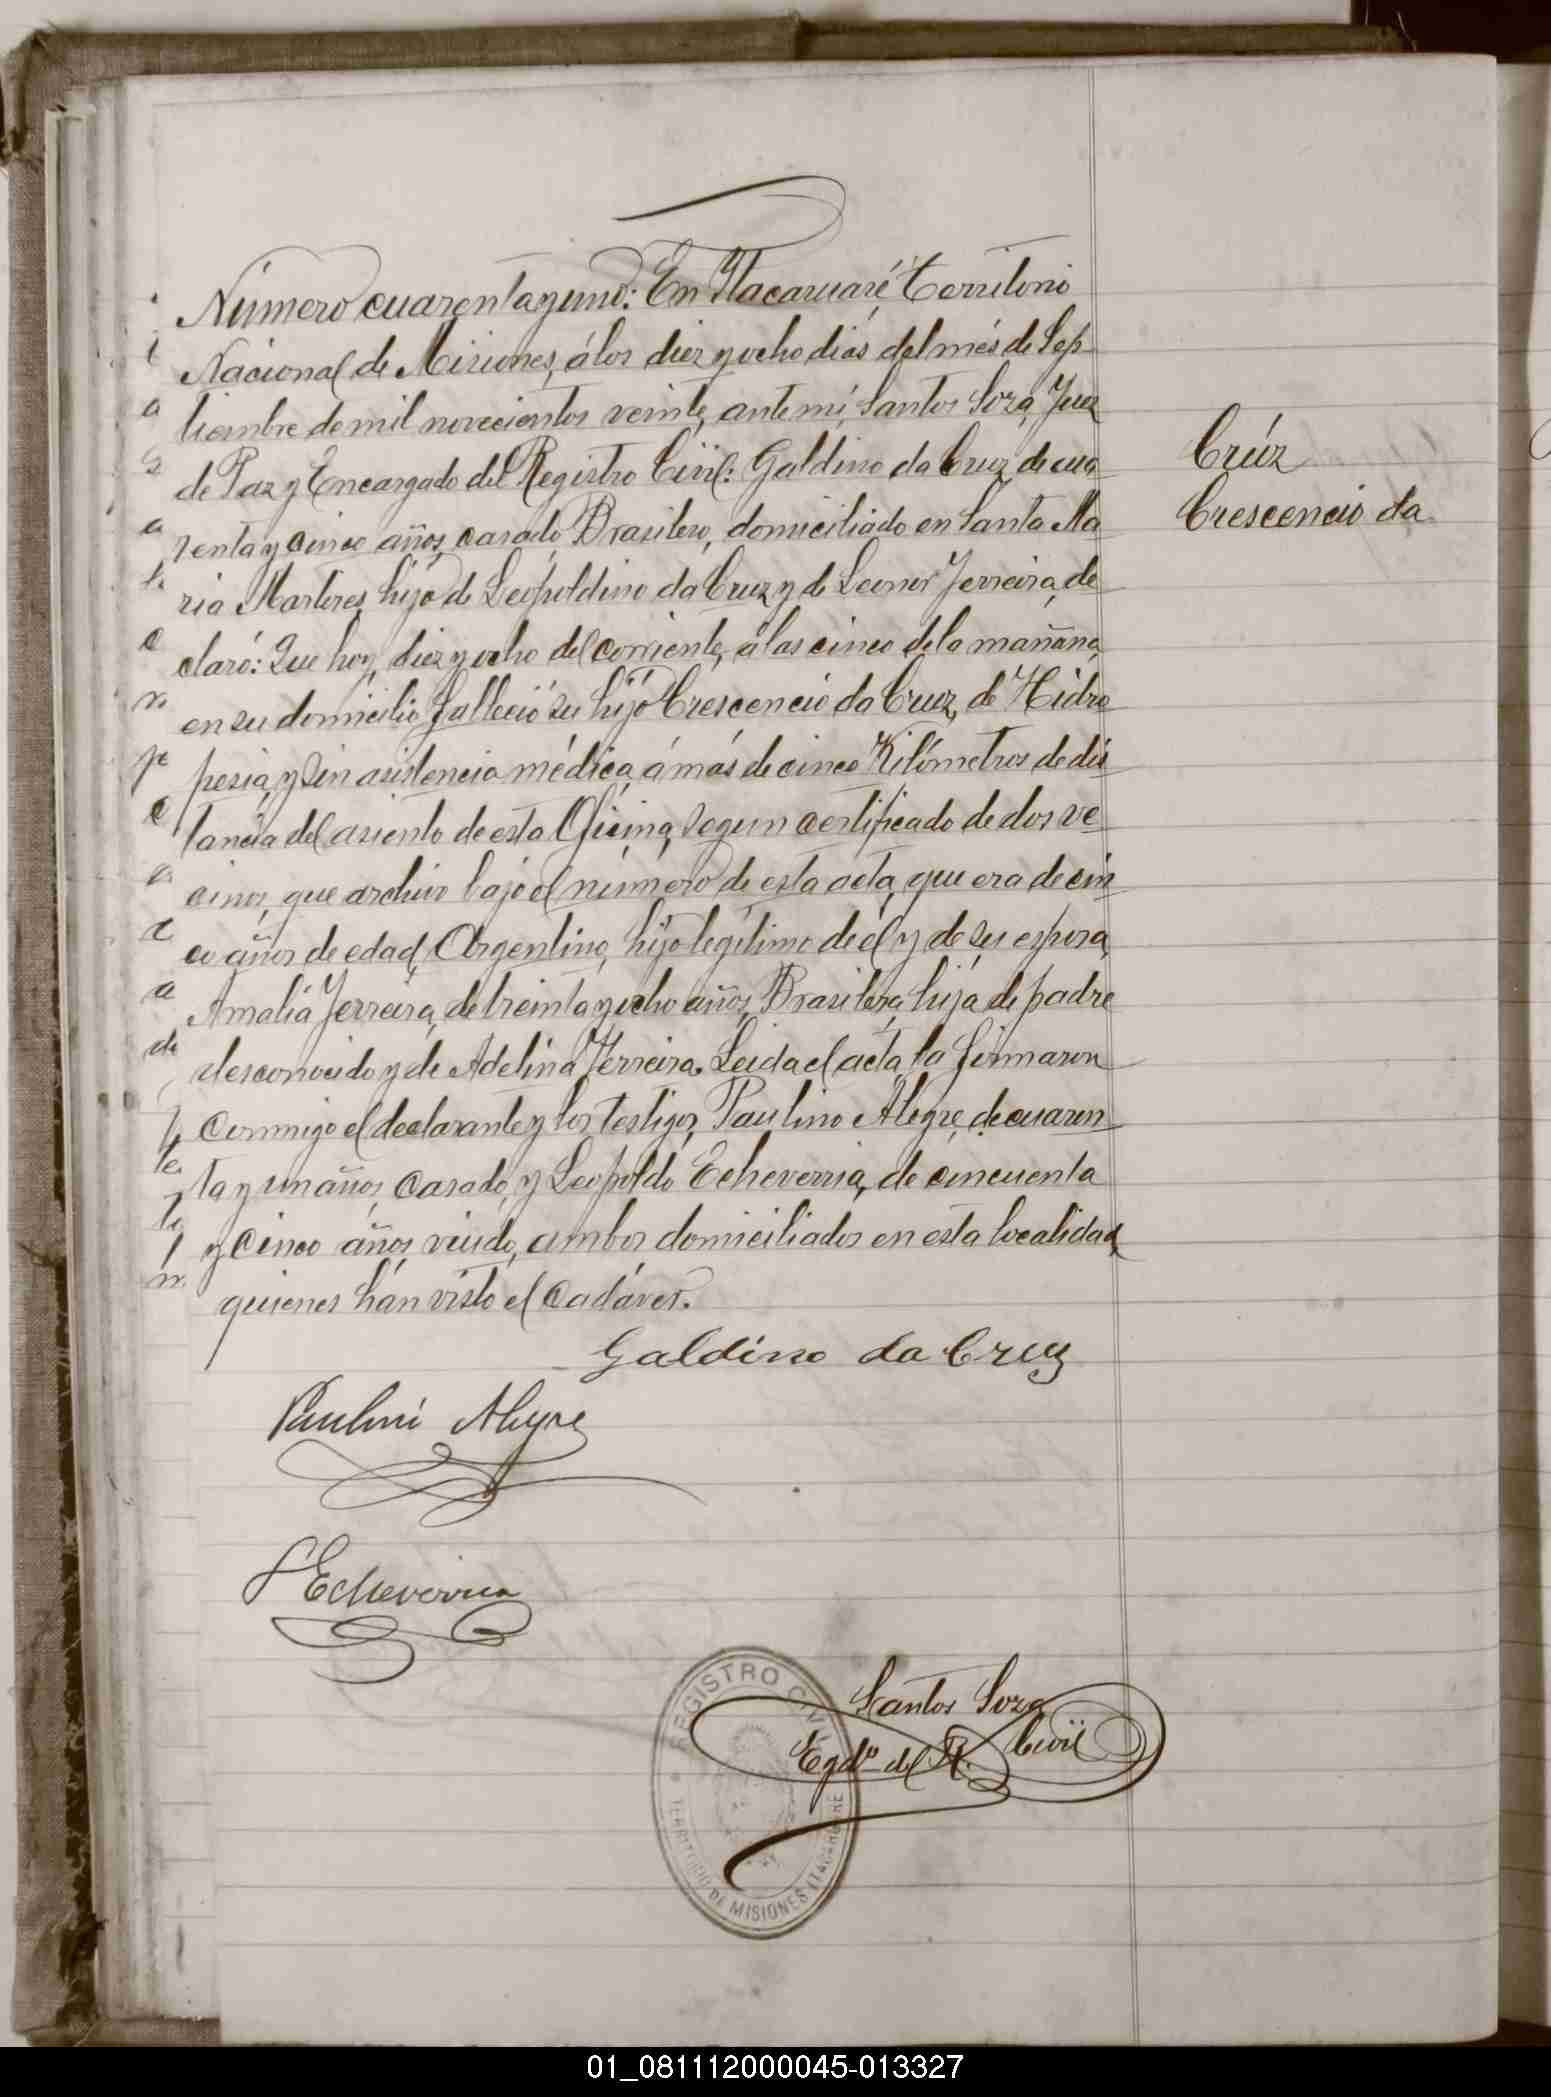 Número cuarenta y uno: En Itacaruaré Territorio
Nacional de Misiones, á los diez y ocho dias del més de Sep-
tiembre de mil novecientos veinte, ante mi, Santos Soza, Juez
de Paz y Encargado del Registro Civil: Galdino da Cruz, de cua
renta y cinco años, casado, Brasilero, domiciliado en Santa Ma
ria Martires, hijo de Leopoldino da Cruz y de Leonor Ferreira, de
claró: Que hoy, diez y ocho del corriente, á las cinco de la mañana,
en su domicilio falleció su hijo Crescencio da Cruz, de Hidro
pesia, y sin asistencia médica, á más de cinco Kilómetros de dis
tancia del asiento de esta Oficina, segun certificado de dos ve
cinos, que archivo bajo el número de esta acta, que era de cin
co años de edad, Argentino, hijo legítimo de él y de su esposa,
Amalia Ferreira, de treinta y ocho años, Brasilera, hija de padre
desconocido y de Adelina Ferreira. Leida el acta, la firmaron
conmigo el declarante y los testigos, Paulino Alegre, de cuaren
ta y un años, casado, y Leopoldo Echeverria, de cincuenta
y cinco años, viudo, ambos domiciliados en esta localidad,
quienes hán visto el cadáver.
Crúz
Crescencio da
Galdino da Cruz
Paulino Alegre
L Echeverria
Santos Soza
Egdo del R. Civil
REGISTRO CIVIL
TERRITORIO DE MISIONES ITACARUARE
01_081112000045-013327